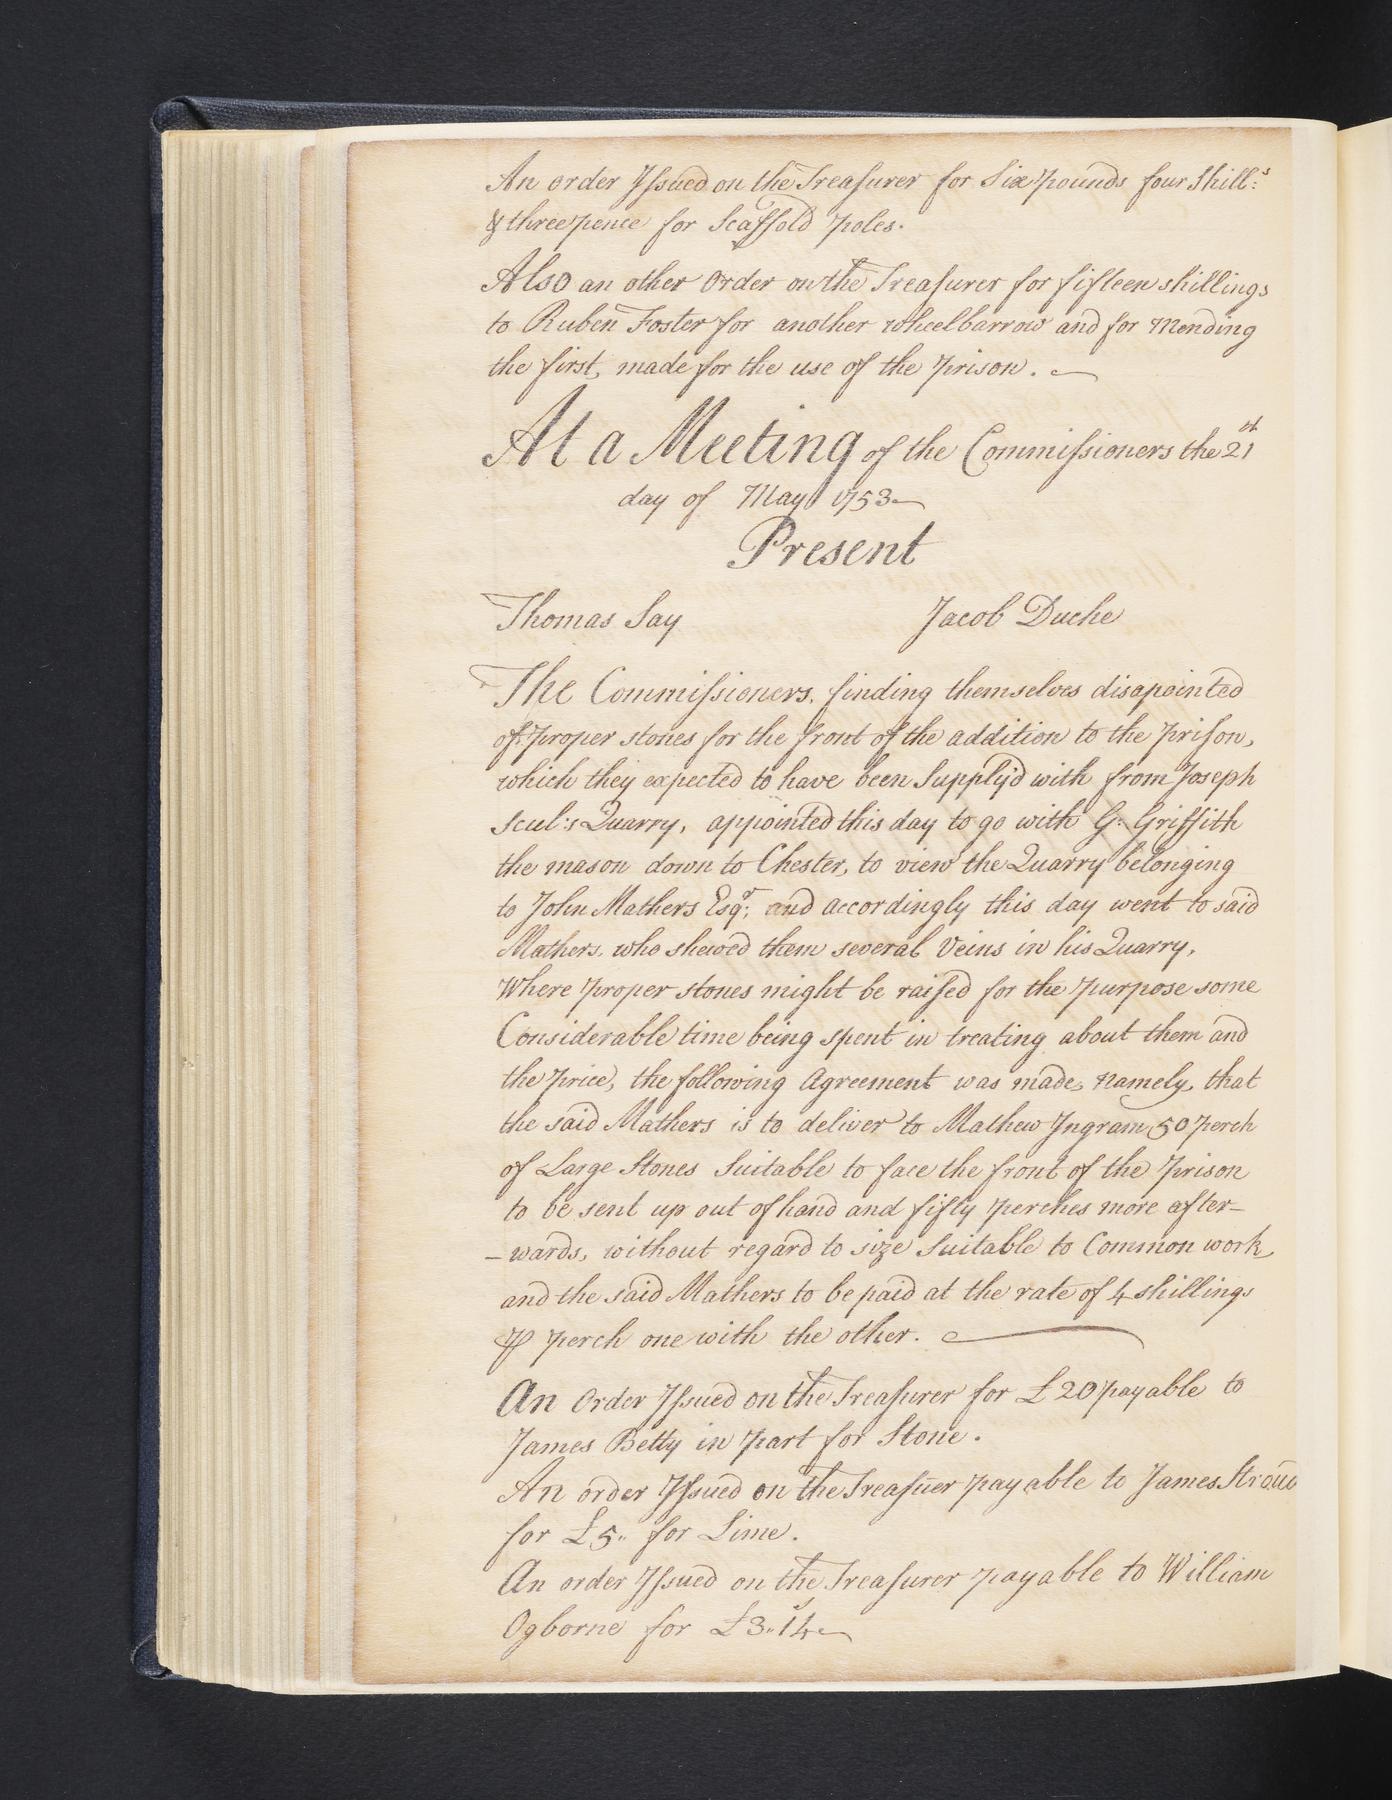 An order Issued on the Treasurer for Six pounds four Shill:s
& three pence for Scaffold poles.
Also an other Order on the Treasurer for fifteen shillings
to Ruben Foster for another wheelbarrow and for Mending
the first, made for the use of the prison.
At a Meeting of the Commissioners the 21st
day of May 1753
Present
Thomas Say Jacob Duche
The Commissioners, finding themselves disapointed
of proper stones for the front of the addition to the prison,
which they expected to have been Supply'd with from Joseph
Scul's Quarry, appointed this day to go with G: Griffith
the mason down to Chester, to view the Quarry belonging
to John Mathers Esqr; and accordingly this day went to said
Mathers, who shewed them several Veins in his Quarry,
Where proper stones might be raised for the purpose some
Considerable time being spent in treating about them and
the price, the following Agreement was made, Namely, that
the said Mathers is to deliver to Mathew Ingram 50 perch
of Large Stones Suitable to face the front of the prison
to be sent up out of hand and fifty perches more after-
-wards, without regard to size Suitable to Common work,
and the said Mathers to be paid at the rate of 4 shillings
⅌ perch one with the other.
An Order Issued on the Treasurer for £20 payable to
James Betty in part for Stone.
An order Issued on the Treasuer payable to James Stroud
for £5,, for Lime.
An order Issued on the Treasurer payable to William
Ogborne for £3,,14s